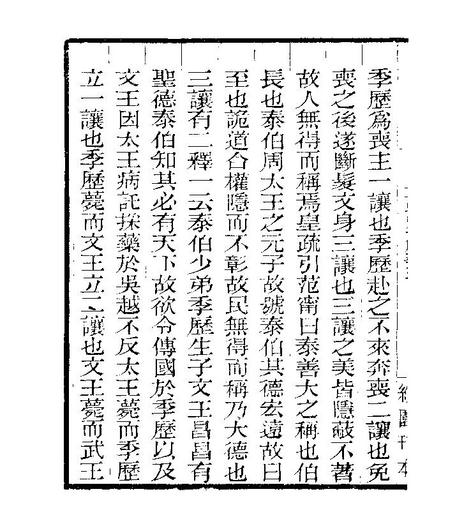 季歷爲喪主一讓也季歷赴之不來奔喪二讓也免
喪之後遂斷髮文身三讓也三讓之美皆隱蔽不著
故人無得而稱焉皇疏引范甯曰泰善大之稱也伯
長也泰伯周太王之元子故號泰伯其德宏遠故曰
至也詭道合權隱而不彰故民無得而稱乃大德也
三讓有二釋一云泰伯少弟季歷生子文王昌昌有
聖德泰伯知其必有天下故欲令傳國於季歷以及
文王因太王病託採藥於吳越不反太王薨而季歷
立一讓也季歷薨而文王立二讓也文王薨而武王